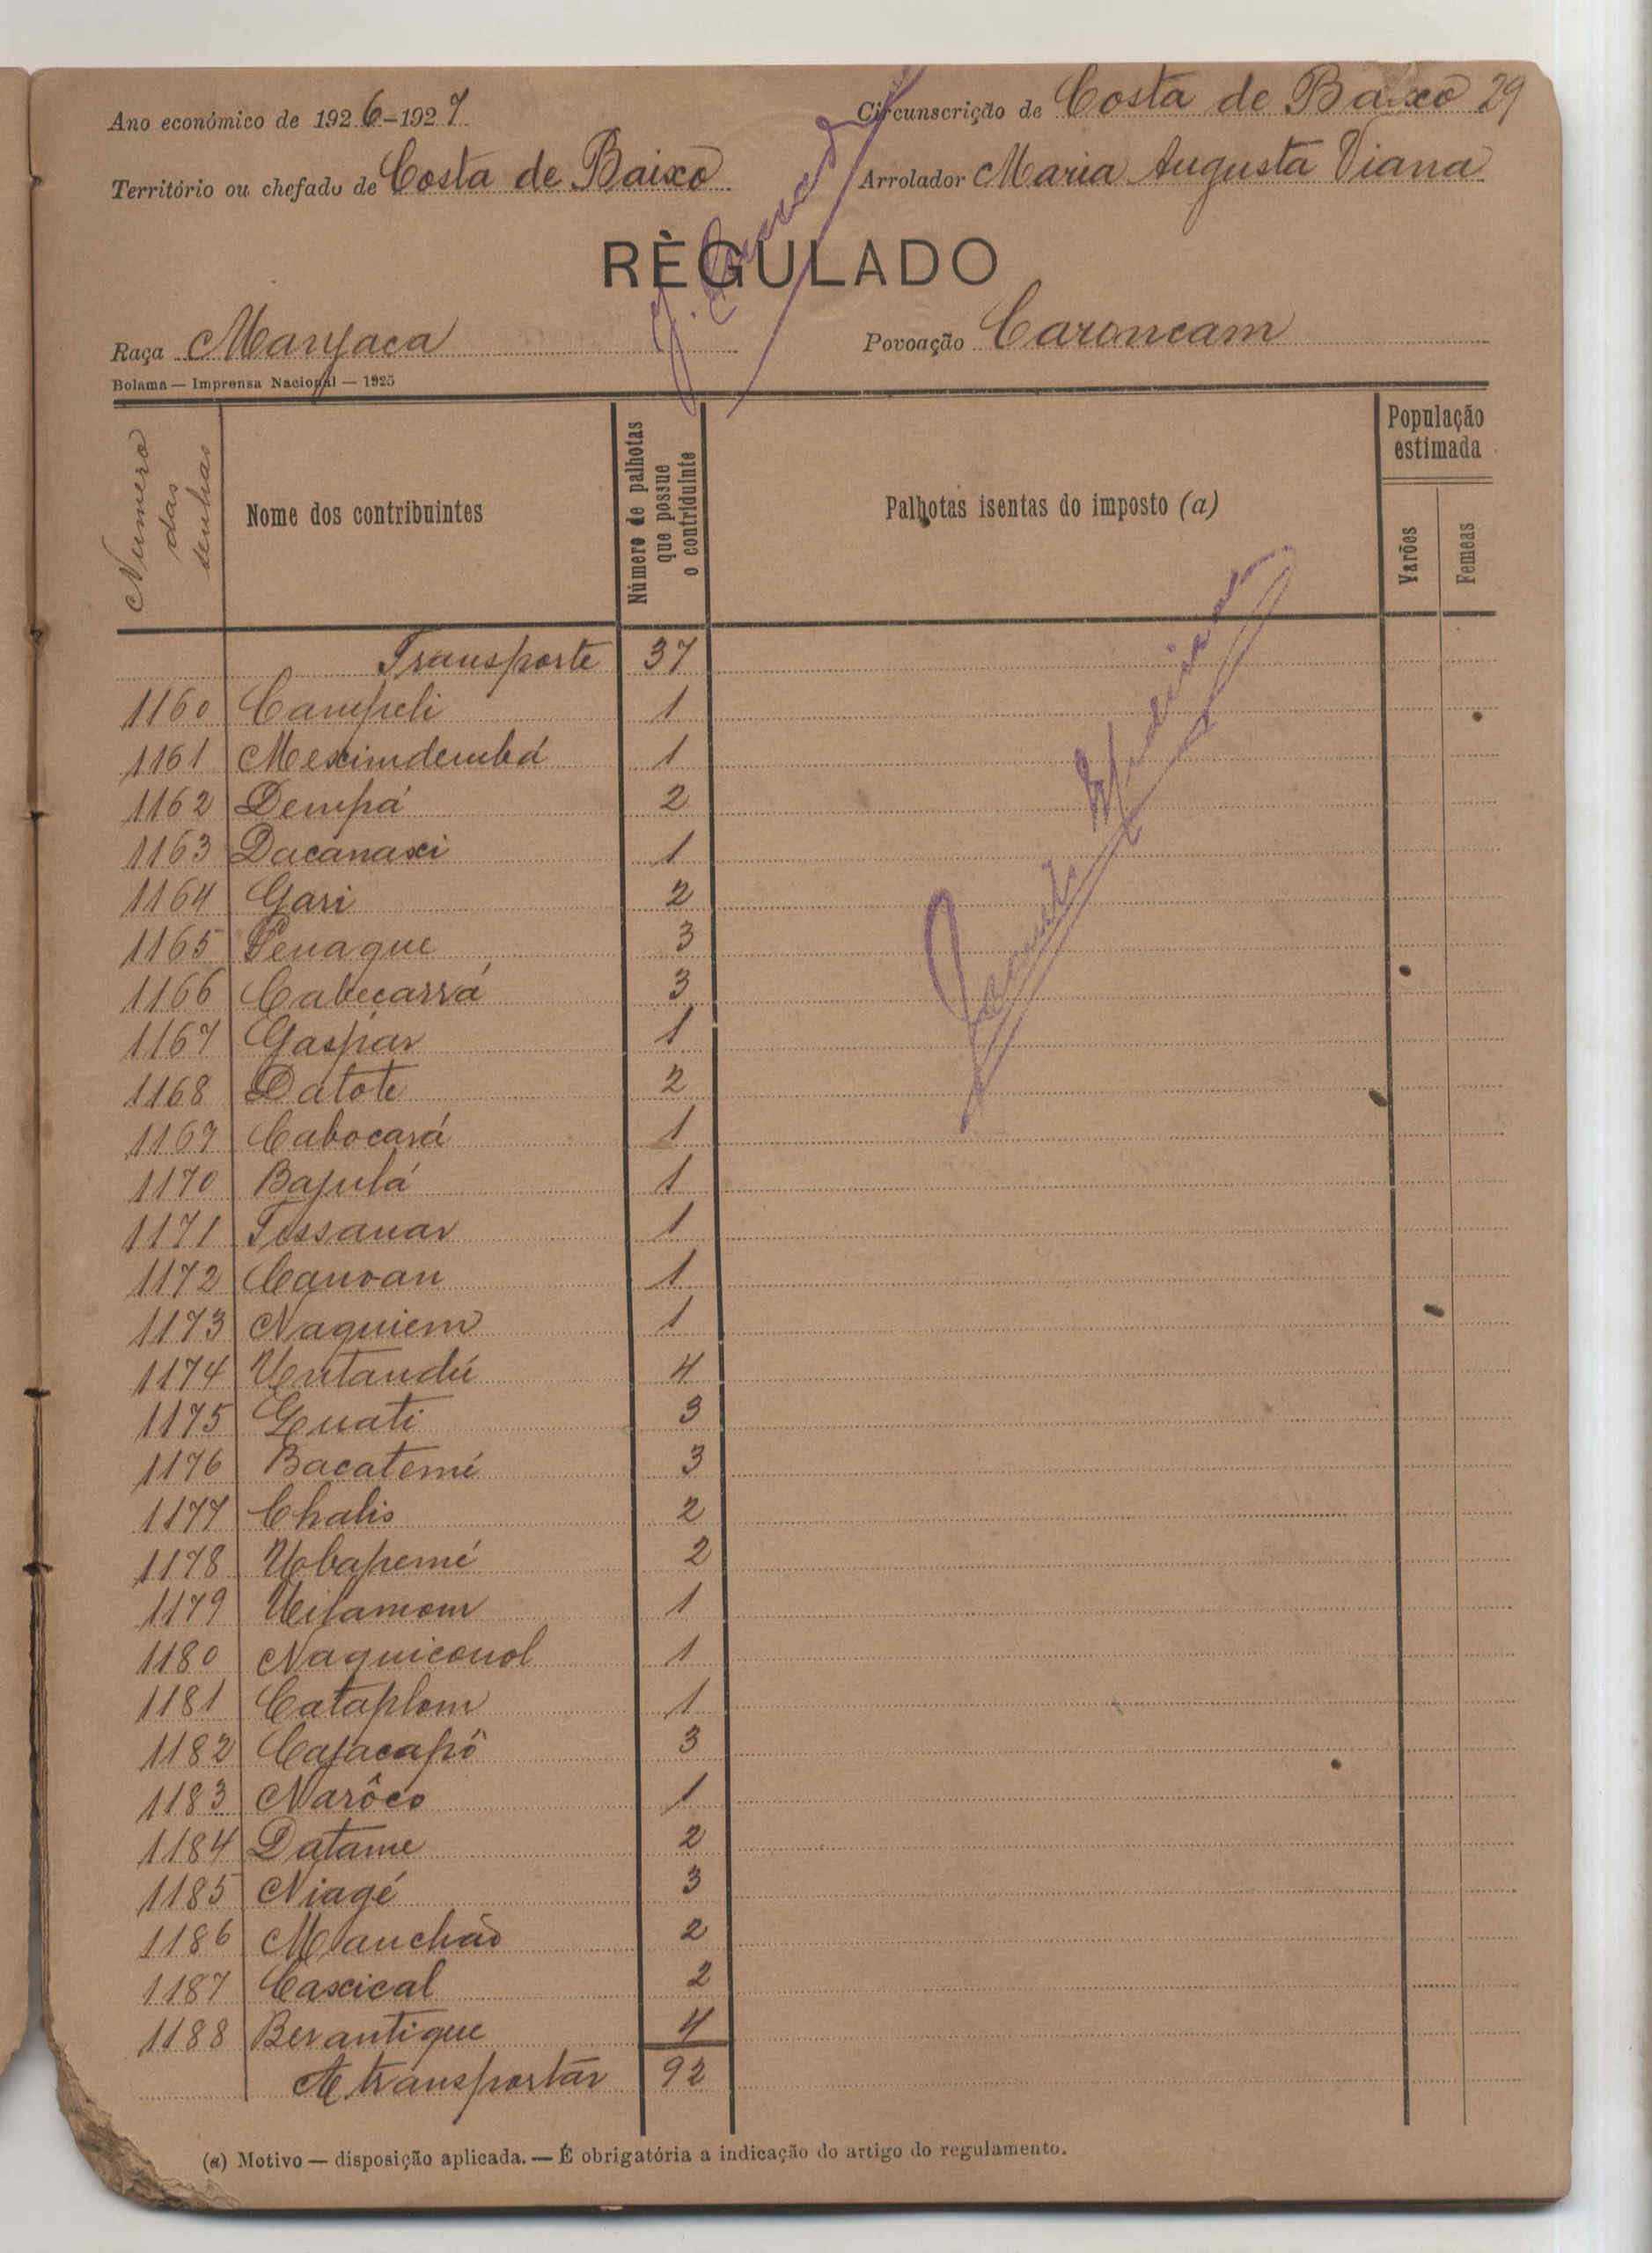 Ano económico de 1926-1927 Circunscrição de Costa de Baixo 29
Território ou chefado de Costa de Baixo Arrolador Maria Augusta Viana
RÈGULADO
Raça Manjaca Povoação Caroncam
Bolama — Imprensa Nacional — 1925
Numero das senhas
Nome dos contribuintes
Número de palhotas que possue o contriduinte
Palhotas isentas do imposto (a)
População estimada
Varões Femeas
Transporte 37
1160 Campeli 1
1161 Meximdembá 1
1162 Dempá 2
1163 Dacanaxi 1
1164 Gari 2
1165 Penaque 3
1166 Cabecarrá 3
1167 Gaspar 1
1168 Datote 2
1169 Cabocará 1
1170 Bajulá 1
1171 Tessanar 1
1172 Canoan 1
1173 Naquiem 1
1174 Untandú 4
1175 Guati 3
1176 Bacatemé 3
1177 Chalis 2
1178 Ubapemé 2
1179 1
1180 Naquiconol 1
1181 Cataplom 1
1182 Cajacapô 3
1183 Narôco 1
1184 Datame 2
1185 Niagé 3
1186 Manchão 2
1187 Caxical 2
1188 Berantique 4
A transportar 92
(a) Motivo — disposição aplicada. — É obrigatória a indicação do artigo do regulamento.